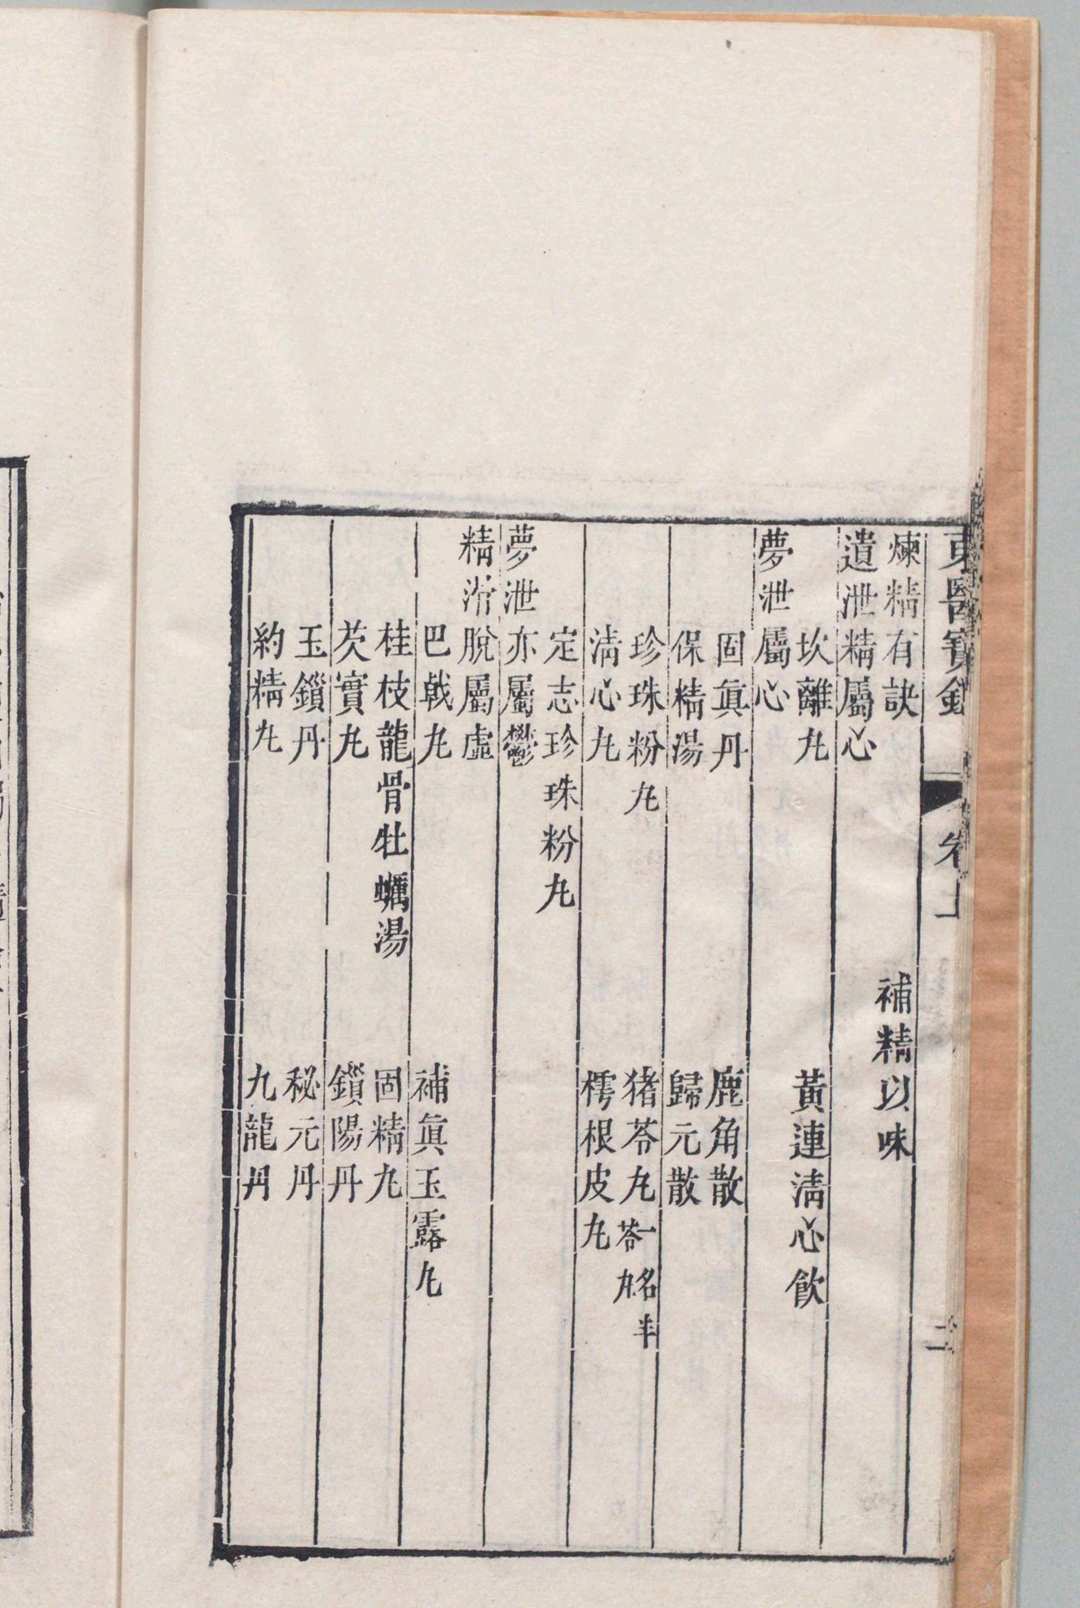 東醫寶鑑 卷上
煉精有訣 補精以味
遺泄精屬心
坎離丸 黃連淸心飮
夢泄屬心
固眞丹 鹿角散
保精湯 歸元散
珍珠粉丸 猪苓丸一名半苓丸
淸心丸 樗根皮丸
定志珍珠粉丸
夢泄亦屬鬱
精滑脫屬虛
巴戟丸 補眞玉露丸
桂枝龍骨牡蠣湯 固精丸
芡實丸 鎖陽丹
玉鎖丹 秘元丹
約精丸 九龍丹